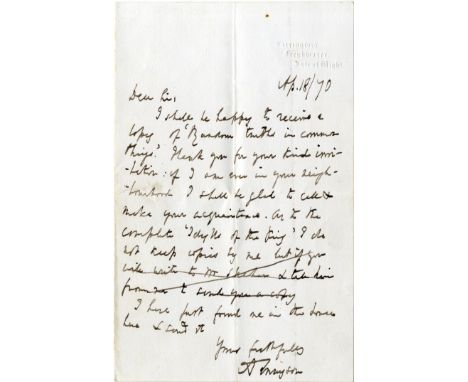 Farringford,
Freshwater,
Isle of Wight.
Ap. 18/70
Dear Sir,
I shall be happy to receive a
copy of 'Random truths in common
things.' Thank you for your kind invi-
tation: if I am ever in your neigh-
bourhood I shall be glad to call &
make your acquaintance. As to the
complete 'Idylls of the King' I do
not keep copies by me but if you
will write to Mr Strahan & tell him
from me to send you a copy
I have just found one in the house
here & send it
Yours faithfully
A Tennyson